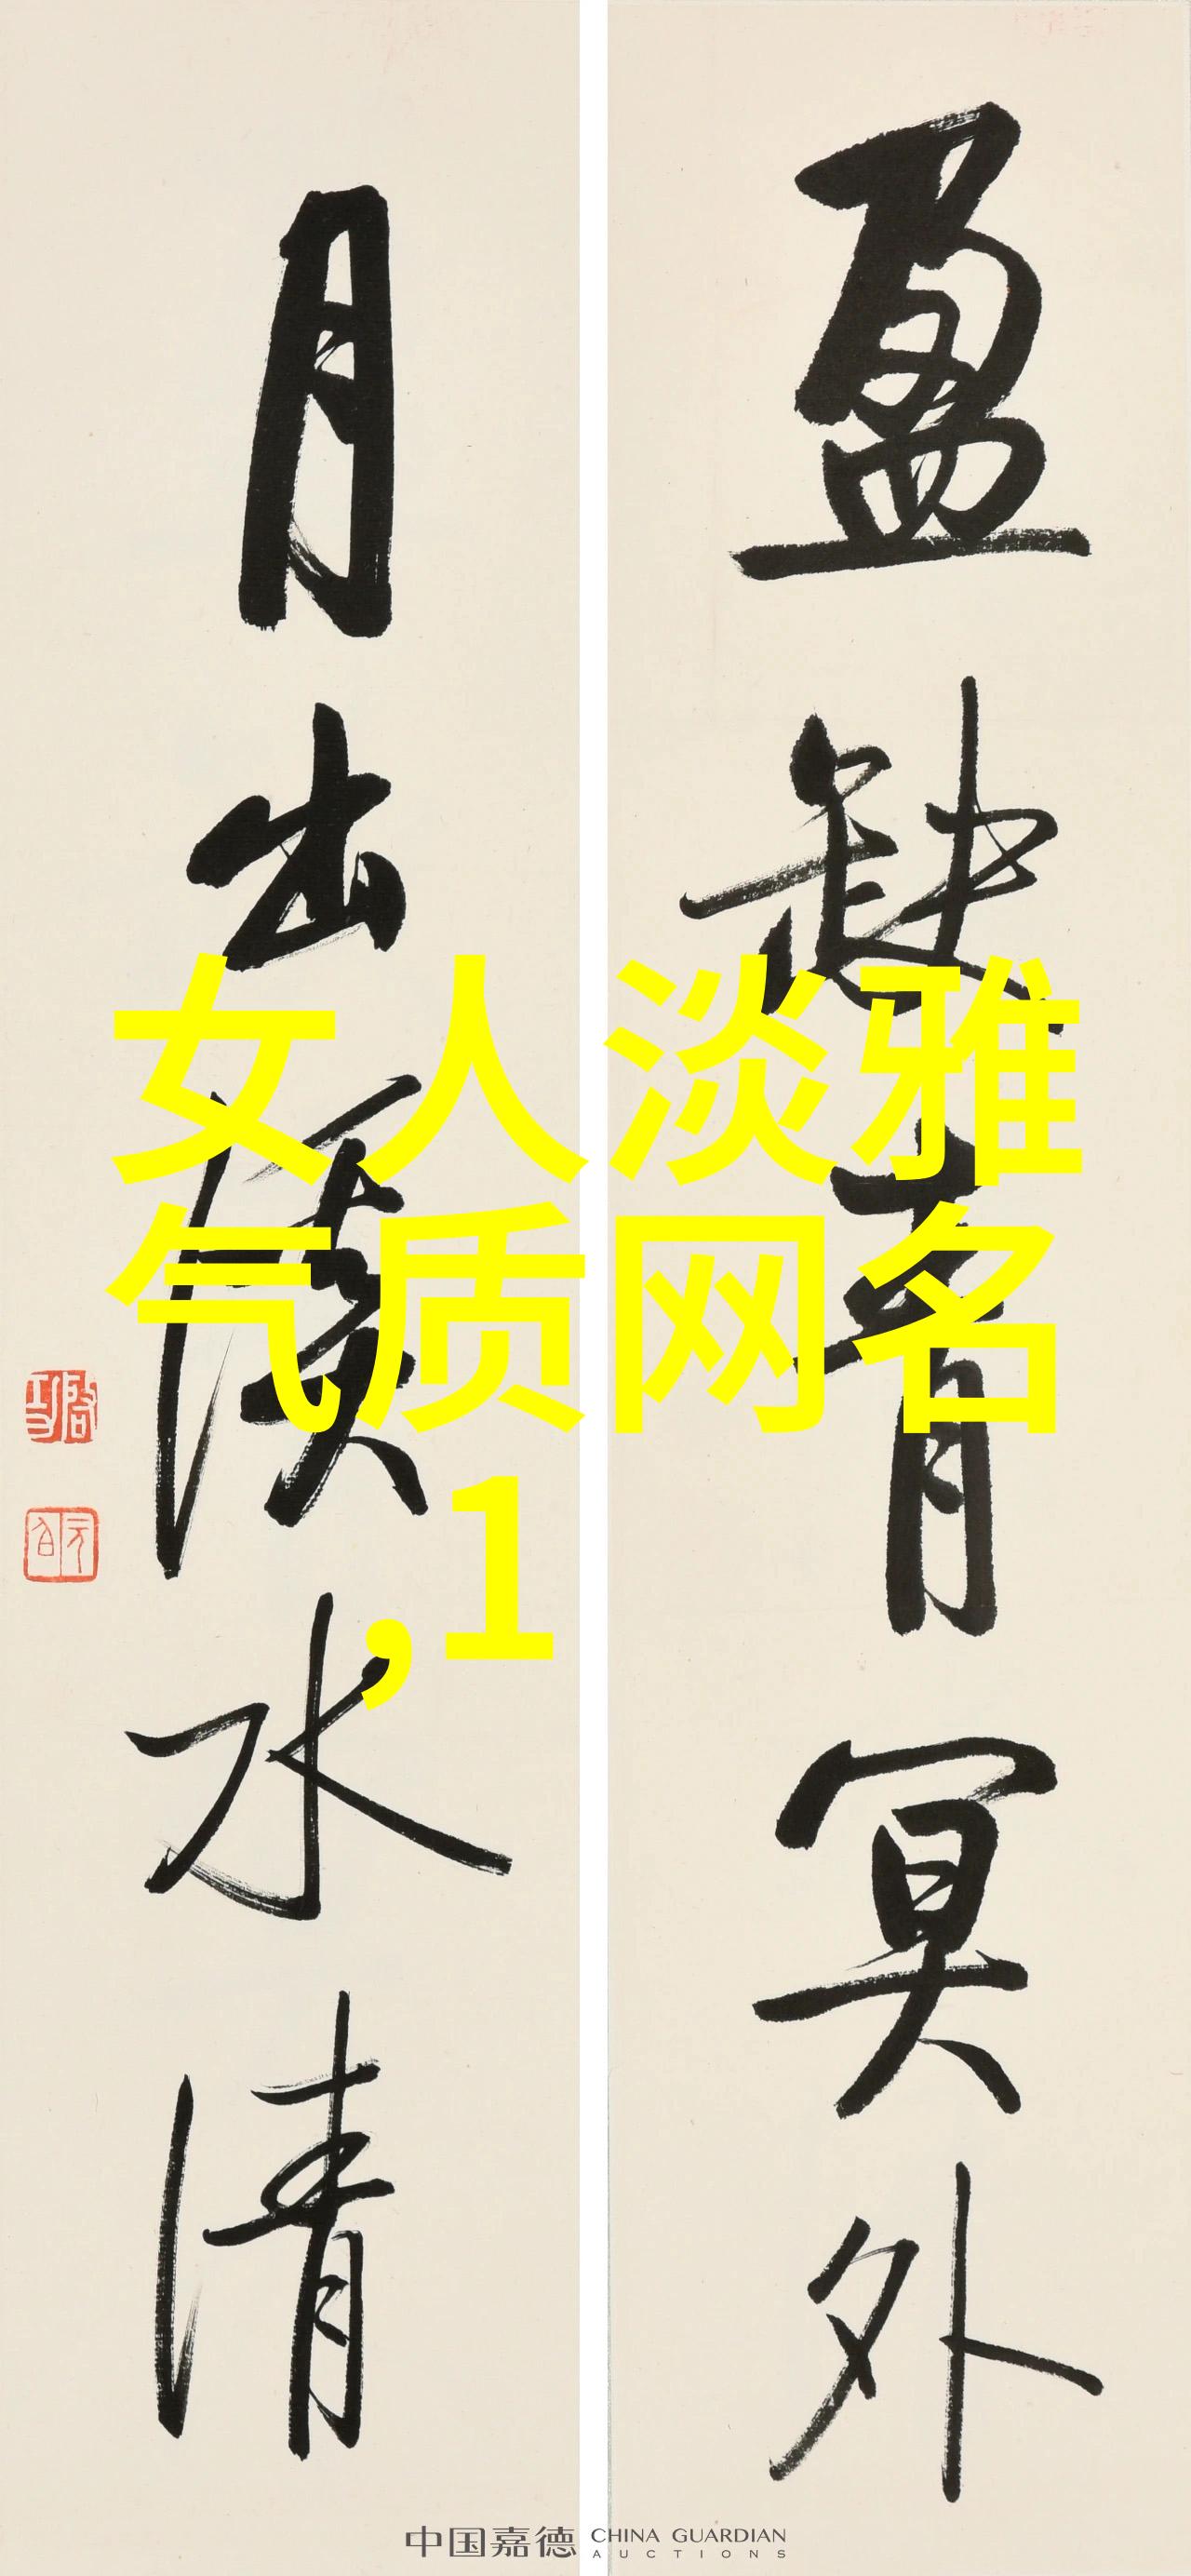 盈缺青冥外
月出溪水清
女人淡雅
气质网名
,1
启功
元白
中国嘉德 CHINA GUARDIAN
AUCTIONS